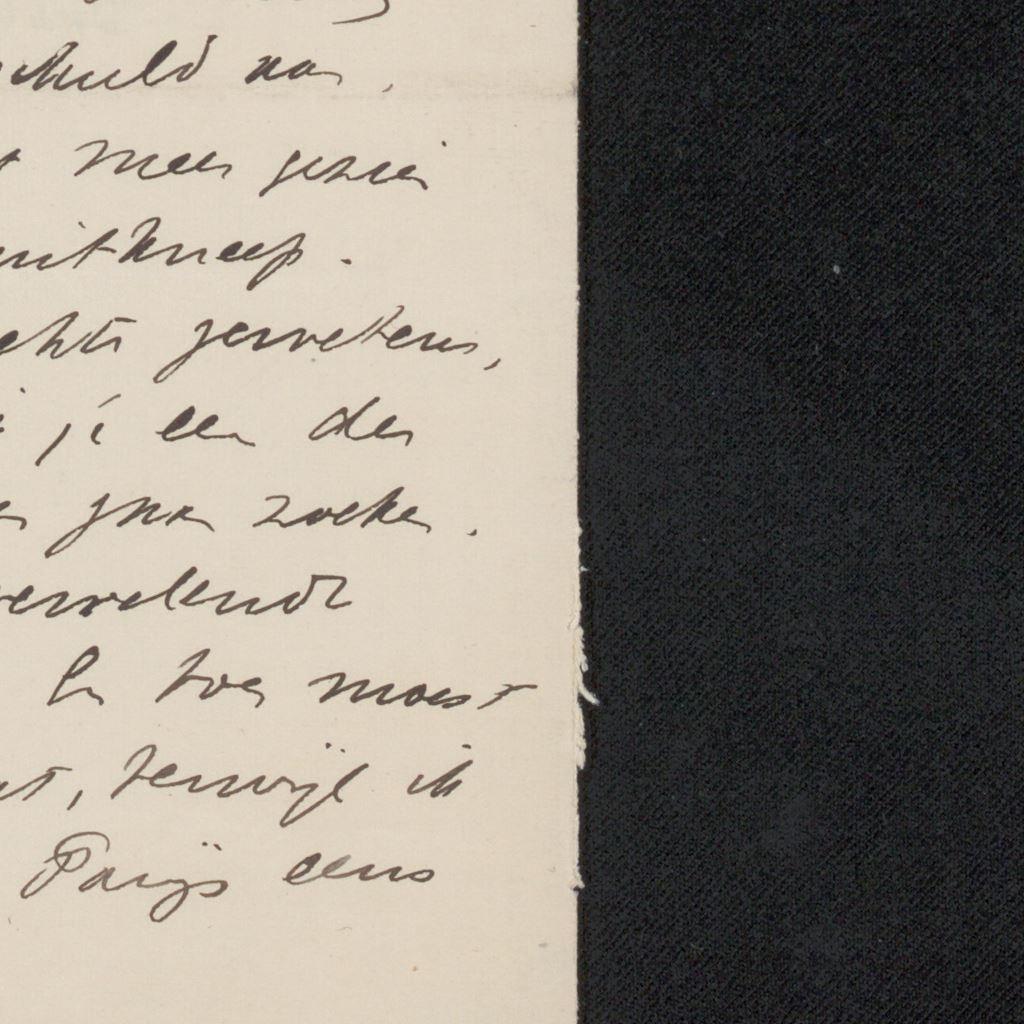 schuld van.
meer gezien
uitkneep.
gewetens,
je een der
gaan zoeken.
vervelends
En toen moest
, terwijl ik
Parijs eens